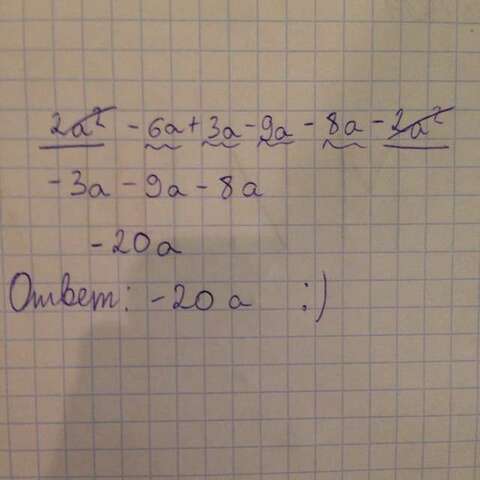 2a² - 6a + 3a - 9a - 8a - 2a²
-3a - 9a - 8a
-20a
Ответ: -20a :)